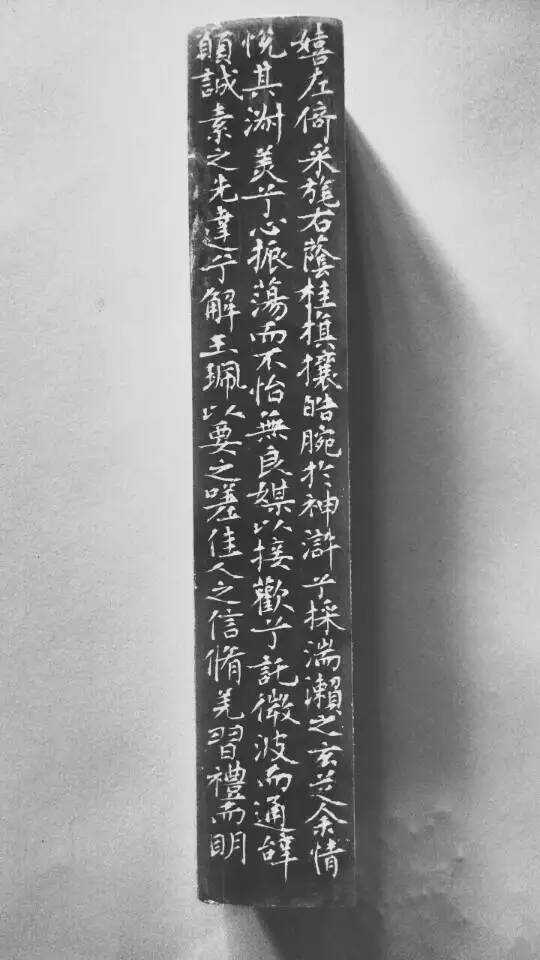 嬉左倚采旄右蔭桂旗攘皓腕於神滸兮採湍瀨之玄芝余情
悅其淑美兮心振蕩而不怡無良媒以接歡兮託微波而通辭
願誠素之先達兮解玉珮以要之嗟佳人之信脩羌習禮而明